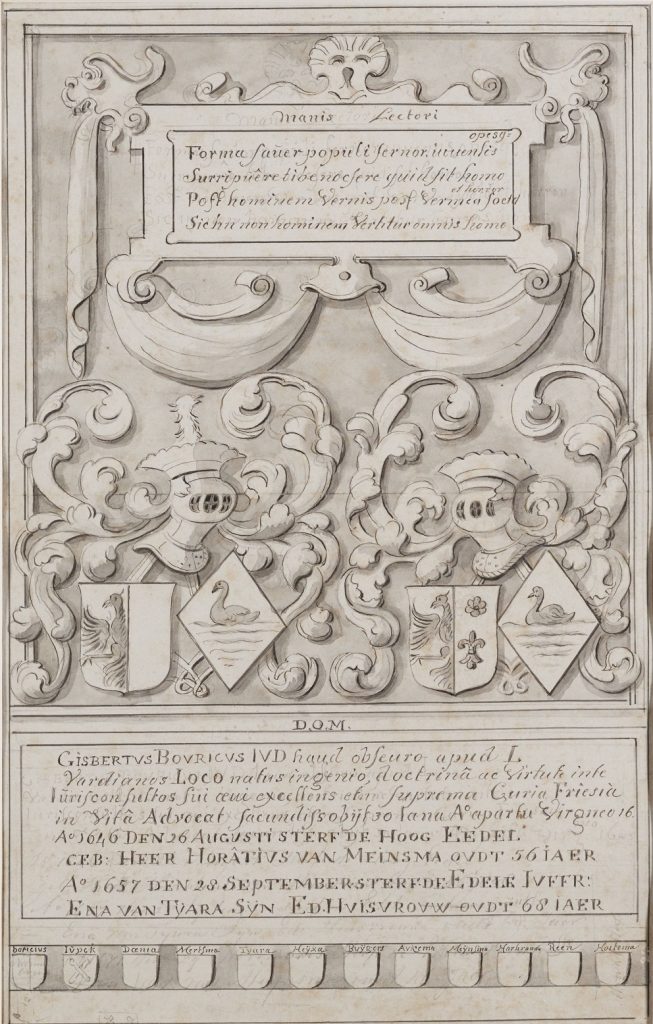 Manis Lectori
opesq=
Forma favẽr populi fervor, iuvenlis
Surripuêre tibe nocsere quid sit homo
et horror
Post hominem Vermis post Vermem
Sic in non hominem Vertitur omnis homo
D.O.M.
GISBERTVS BOVRICVS IUD haud obscuro apud L
Vardianos LOCO natus ingenio, doctrinâ ac Virtute inte
Iurisconsultos sui ævi excellens et in suprema Curia Frisia
in Vitâ Advocat facundiss obijt 30 Iana Aº apartu Virgneo 16.
Aº 1646 DEN 26 AUGUSTI STERF DE HOOG EEDEL
GEB: HEER HORÂTIVS VAN MEINSMA OVDT 56 IAER
Aº 1657 DEN 28 SEPTEMBER STERF DE EDELE IUFFR:
ENA VAN TŸARA SŸN ED. HUISVROUW OVDT 68 IAER
boricius Iŭpck Dœnia Meŕsma Tyara Heÿxa Buÿgers Aukema Meÿnsma Harkrana Reen